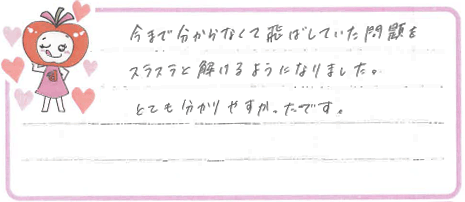 今まで分からなくて飛ばしていた問題を
スラスラと解けるようになりました。
とても分かりやすかったです。